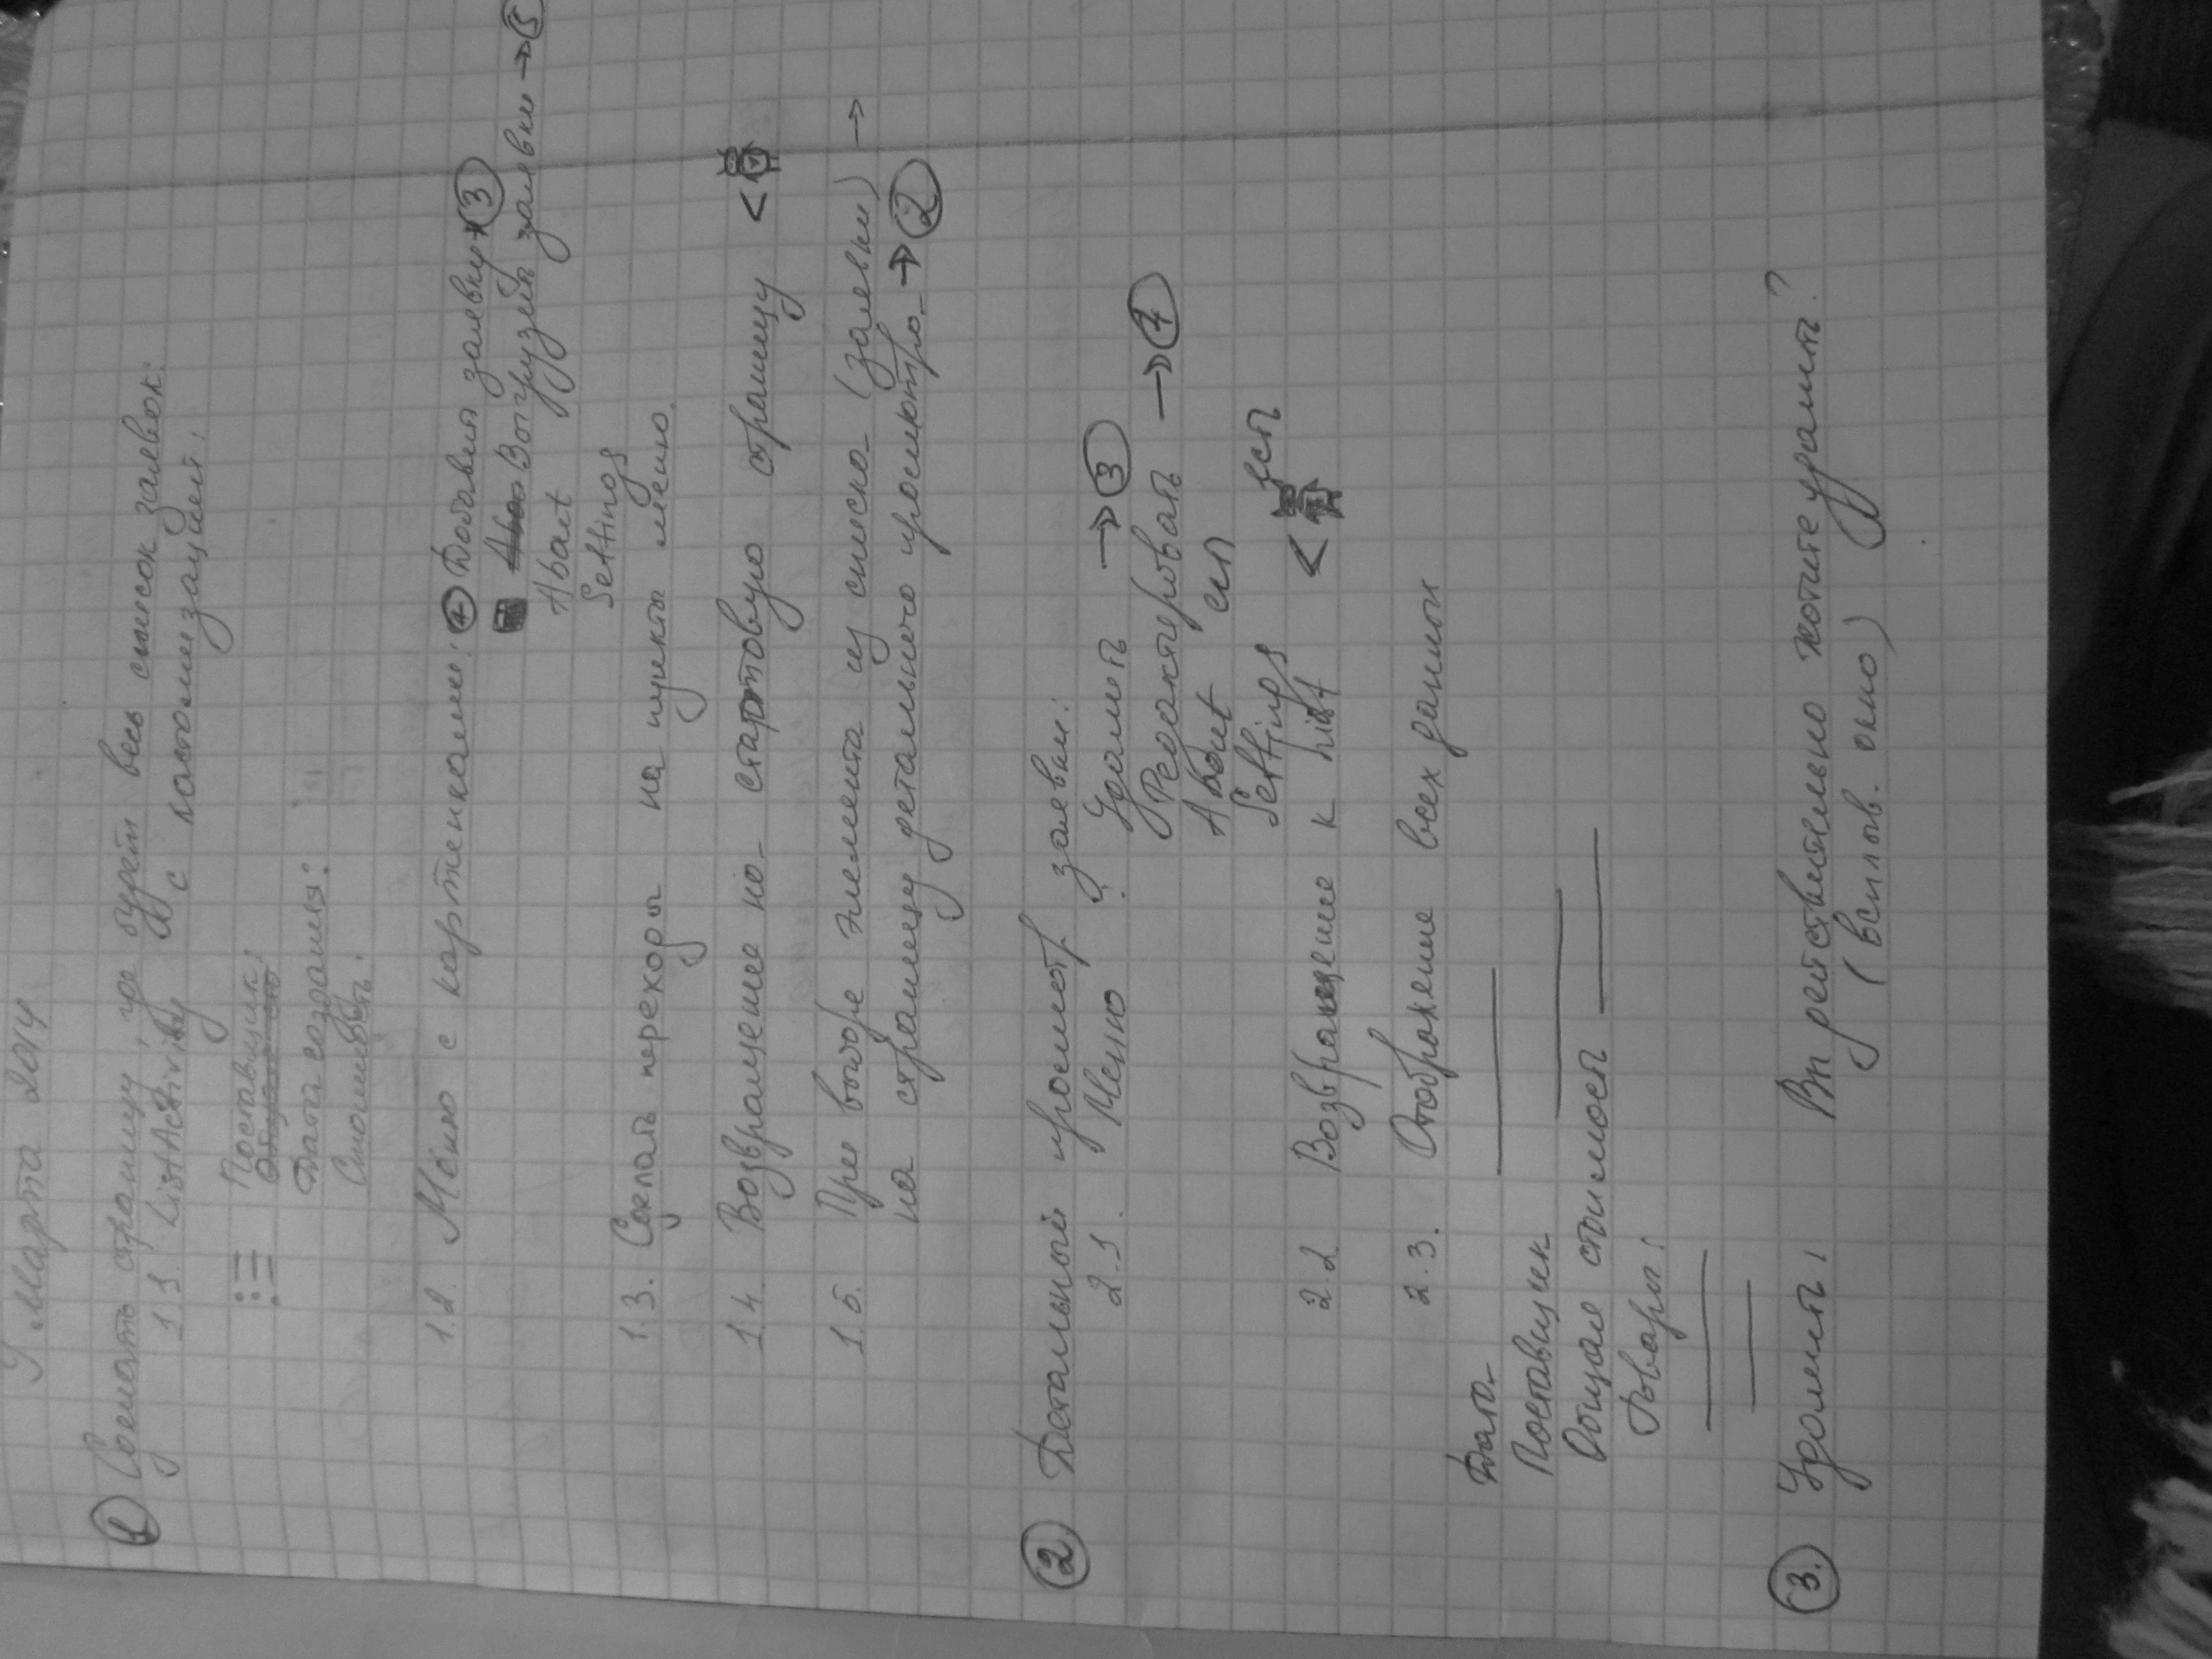 9 Марта 2014
1 Сделать страницу, где будет весь список заявок:
1.1. ListActivity с кастомизацией:
Поставщик:
Общая сто
Дата создания:
Стоимость:
1.2. Меню с картинками: + Добавить заявку → 3
Abou Выгрузить заявки → 5
About
Settings
1.3. Сделать переходы на пункты меню.
1.4. Возвращение на стартовую страницу <
1.5. При выборе элемента из списка (заявки) →
на страницу детального просмотра → 2
2 Детальный просмотр заявки:
2.1. Меню : Удалить → 3
Редактировать → 4
About есть
Settings есть
2.2 Возвращение к List <
2.3. Отображение всех данных
Дата
Поставщик
Общая стоимость
Товары:
3. Удалить: Вы действительно хотите удалить?
(всплыв. окно)